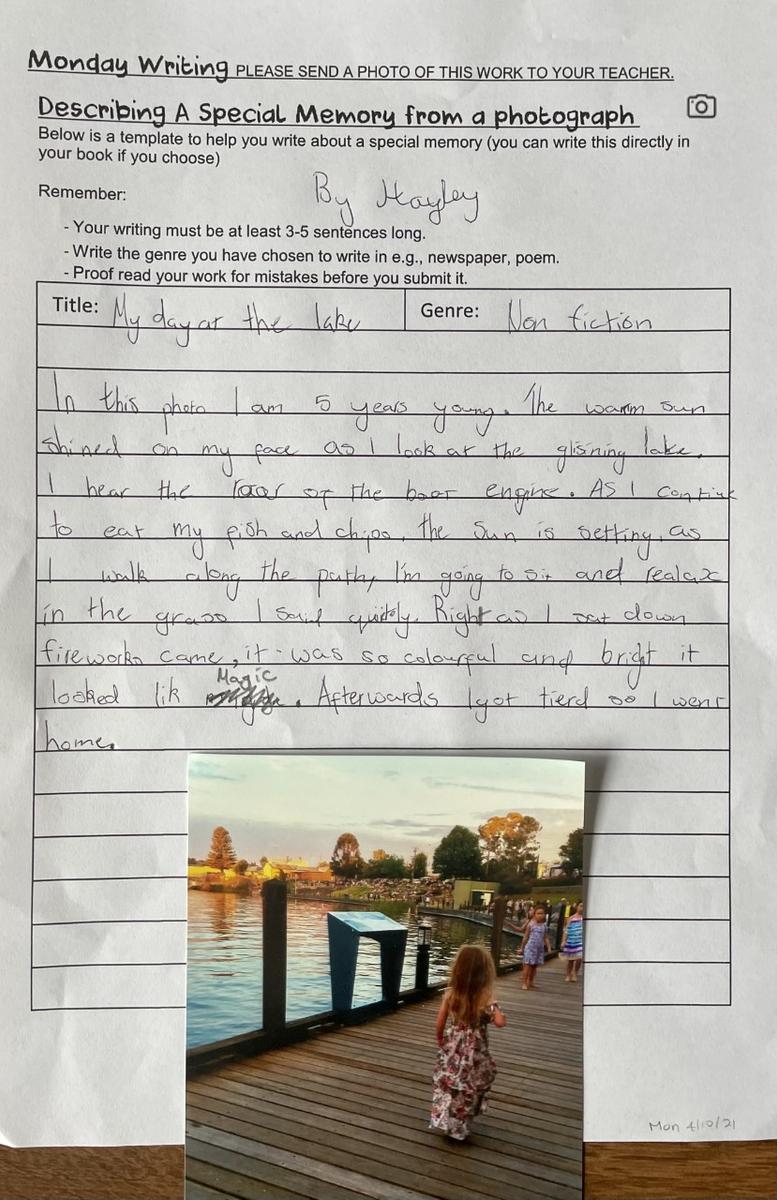 Monday Writing PLEASE SEND A PHOTO OF THIS WORK TO YOUR TEACHER.
Describing A Special Memory from a photograph
Below is a template to help you write about a special memory (you can write this directly in
your book if you choose)
Remember:
By Hayley
- Your writing must be at least 3-5 sentences long.
- Write the genre you have chosen to write in e.g., newspaper, poem.
- Proof read your work for mistakes before you submit it.
Title: My day at the lake Genre: Non fiction
In this photo I am 5 years young. The warm sun
shined on my face as I look at the glisning lake.
I hear the roar of the boat engine. As I
to eat my fish and chips, the sun is setting, as
I walk along the path, I'm going to sit and realax
in the grass I said quietly. Right as I sat down
fireworks came, it was so colourful and bright it
looked lik Magic. Afterwards I got tierd so I went
home.
Mon 4/10/21